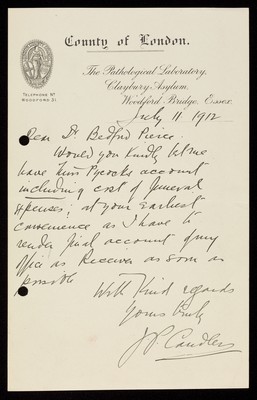 County of London.
The Pathological Laboratory,
Claybury Asylum,
Woodford Bridge, Essex.
TELEPHONE Nº
WOODFORD 51.
July 11 1912
Dear Dr Bedford Pierce.
Would you kindly let me
have Miss Pycocks account
including cost of funeral
expenses; at your earliest
convenience as I have to
render final account of my
office as Receiver as soon as
possible
With Kind regards
Yours truly
J P. Candler